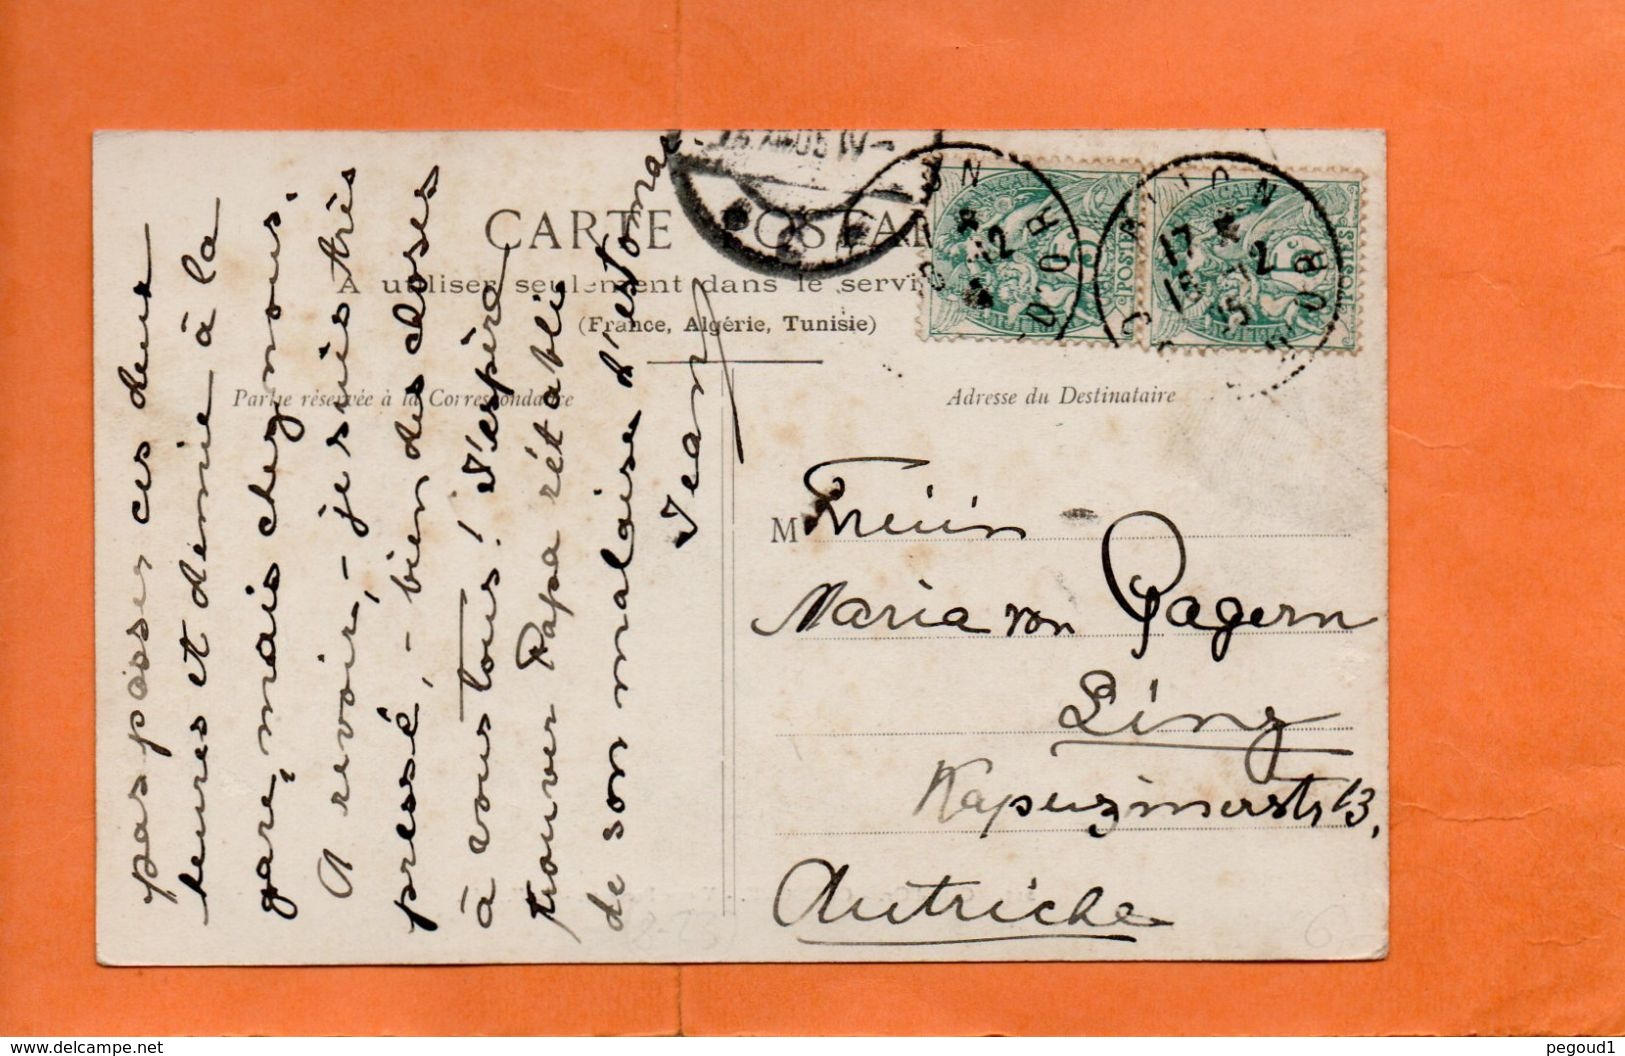 pas passer ces deux
heures et demie à la
gare, mais chez nous.
A revoir, - je suis très
pressé, - bien des choses
à vous tous! J'espère
trouver Papa rétabli
de son malaise d'estomac.
Jean
CARTE POSTALE
A utiliser seulement dans le servi
(France, Algérie, Tunisie)
Partie réservée à la Correspondance
Adresse du Destinataire
M
Maria von Pagern
Linz
Kapuzinerstr 13.
Autriche
POSTES
POSTES
D'OR
17
15 12
05
pegoud1
delcampe.net